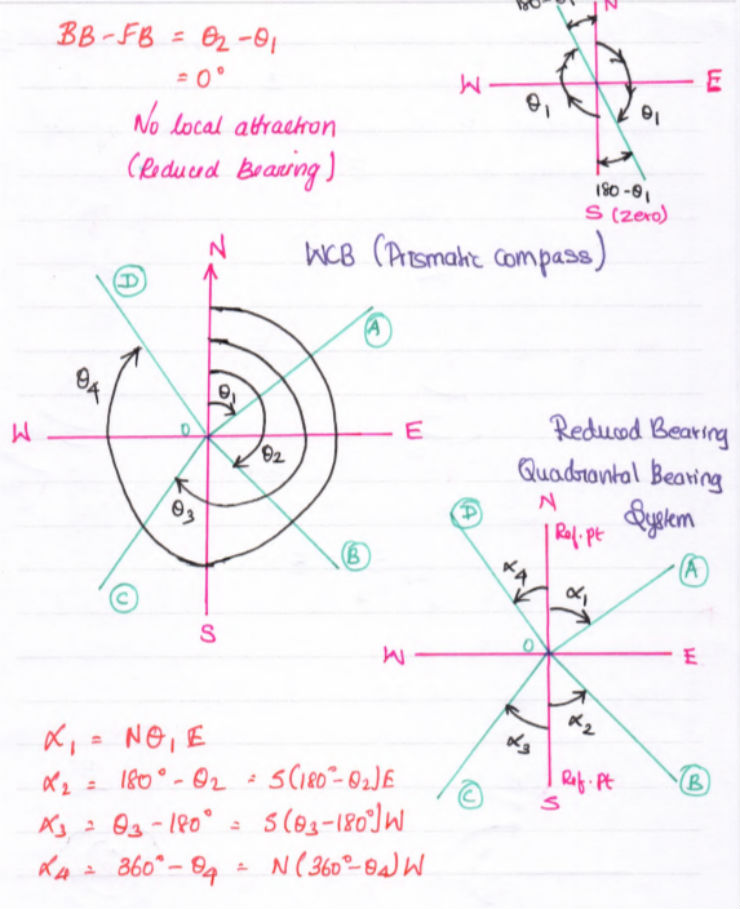 BB - FB = θ2 - θ1
= 0°
No local attraction
(Reduced Bearing)
180-θ1
N
W
E
θ1
θ1
180-θ1
S (zero)
WCB (Prismatic compass)
N
D
A
θ4
θ1
W
O
E
θ2
θ3
B
C
S
Reduced Bearing
Quadrantal Bearing
System
N
Ref. pt
D
A
α4
α1
O
W
E
α3
α2
C
Ref. pt
B
S
α1 = Nθ1E
α2 = 180° - θ2 = S(180°-θ2)E
α3 = θ3 - 180° = S(θ3-180°)W
α4 = 360° - θ4 = N(360°-θ4)W